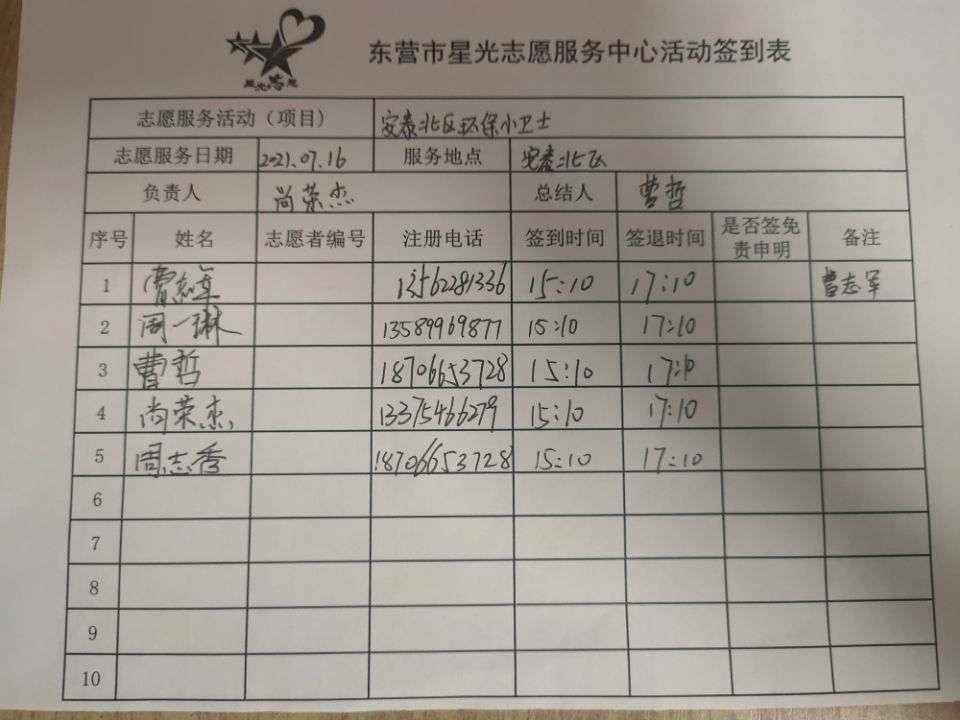 星光志愿
东营市星光志愿服务中心活动签到表
志愿服务活动（项目） 安泰北区环保小卫士
志愿服务日期 2021.07.16 服务地点 安泰北区
负责人 尚荣杰 总结人 曹哲
序号 姓名 志愿者编号 注册电话 签到时间 签退时间 是否签免责申明 备注
1 曹志军 13562281336 15:10 17:10 曹志军
2 周一琳 13589969877 15:10 17:10
3 曹哲 18706653728 15:10 17:10
4 尚荣杰 13375466279 15:10 17:10
5 周志秀 18706653728 15:10 17:10
6
7
8
9
10